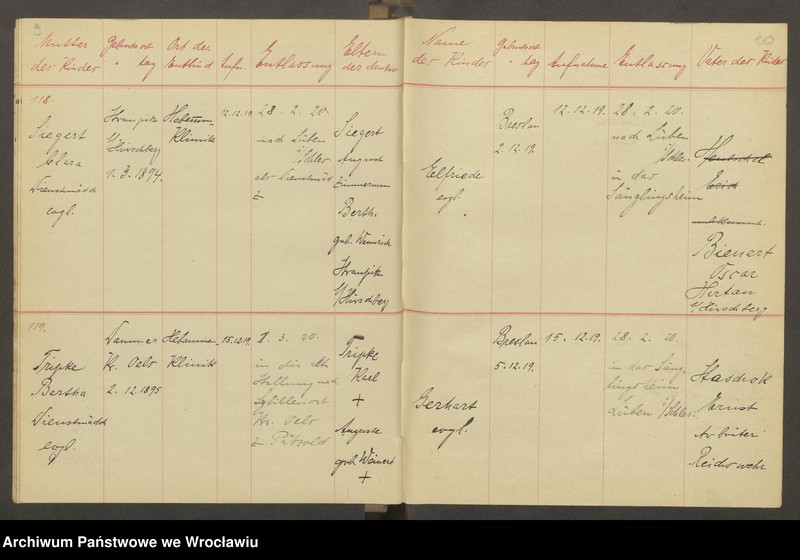 9
Mutter
der Kinder
Geburtsort
" tag
Ort der
Aufn.
Entlassung
Eltern
der Mutter
118.
Siegert
Clara
Dienstmädch
evgl.
Hirschberg
1.3.1894.
Hebamm
Klinik
12.12.19.
28.2.20.
nach Lüben
i/Schles
als Dienstmäd
Siegert
August
Zimmermann
Bertha
geb.
Hirschberg
119.
Tripke
Bertha
Dienstmädch
evgl.
Kr. Oels
2.12.1895
Hebammen
Klinik
15.12.19.
1.3.20.
in die alte
Stellung nach
Sybillenort
Kr. Oels
Tripke
Karl
+
Auguste
geb. Weinert
+
10
Name
der Kinder
Geburtsort
" tag
Aufnahme
Entlassung
Vater der Kinder
Elfriede
evgl.
Breslau
2.12.19.
12.12.19.
28.2.20.
nach Lüben
i/Schles.
in das
Säuglingsheim
unbekannt.
Bienert
Oscar
Hirschberg
Gerhart
evgl.
Breslau
5.12.19.
15.12.19.
28.2.20.
in das Säug
lingsheim
Lüben i/Schles.
Ernst
Arbeiter
Reichswehr
Archiwum Państwowe we Wrocławiu